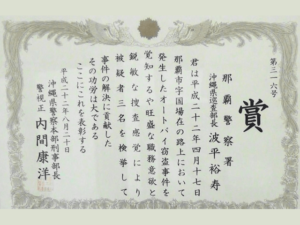 第三一六号
賞
那覇警察署
沖縄県巡査部長 波平裕寿
君は平成二十二年四月十七日
那覇市字国場在の路上において
発生したオートバイ窃盗事件を
覚知するや旺盛な職務意欲と
鋭敏な捜査感覚により
被疑者三名を検挙して
事件の解決に貢献した
その功労は大である
ここにこれを表彰する
平成二十二年八月二十日
沖縄県警察本部刑事部長
警視正 内間康洋